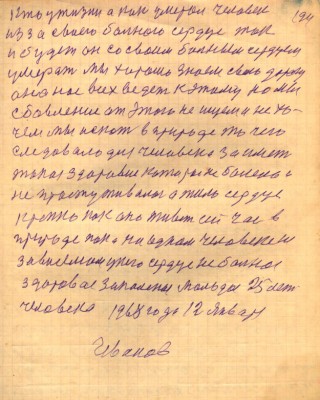 194
есть у жизни а как умером человек
из за своего больного сердце так
и будет он со своим больным сердцем
умерат мы хорошо знаем свою дорогу
она нас всех ведет к этому но мы
сбавление от этого не ищем и не хо-
чем мы искат в природе то чего
следовало для человека заимет
такое здоровие которое не болело а
не простуживалос а жило сердце
крепко как оно живет сей час в
природе пока на одном человеке и
зависемом у него сердце не больное
здоровае закаленое молодое 25 лет
человека 1968 года 12 Январ
Иванов